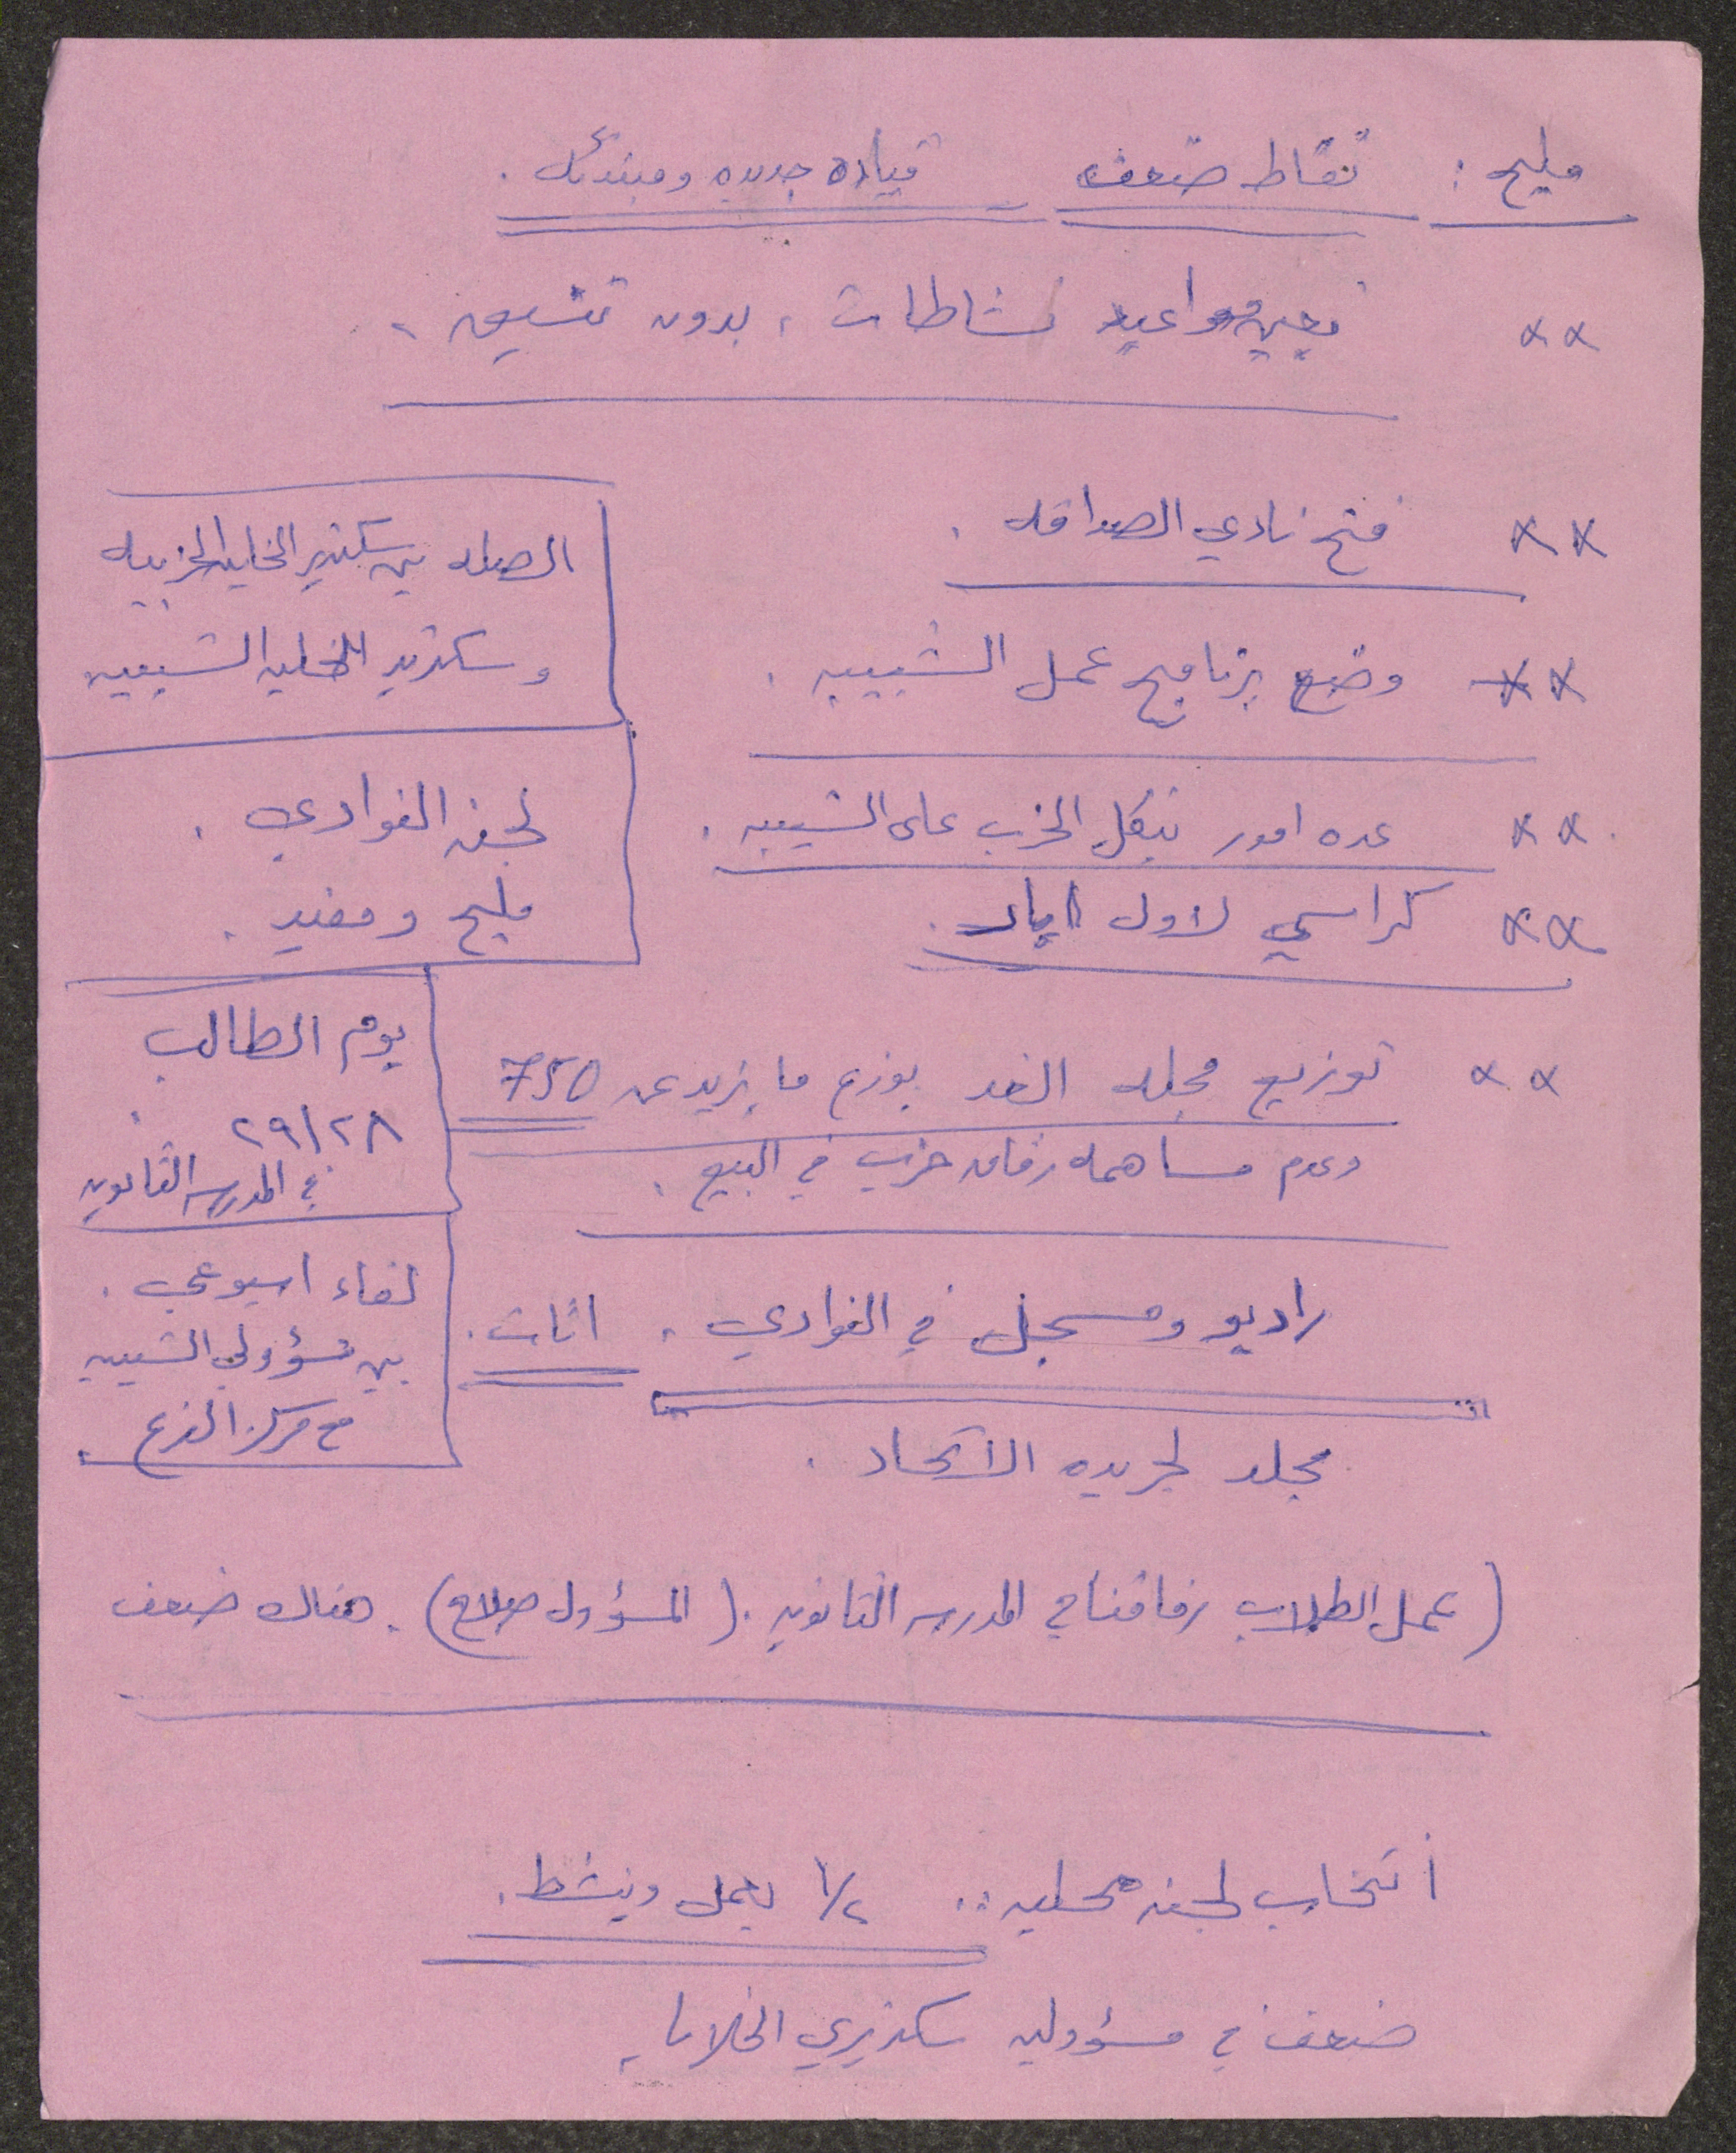 مليح : نقاط ضعف قياده جديده ومبتدئه .
** تعيين مواعيد نشاطات ، بدون تنسيق .
** فتح نادي الصداقه .
** وضع برنامج عمل الشبيبه .
** عده امور بتكل الحزب على الشبيبه .
** كراسي لاول ايار .
** توزيع مجله الغد يوزع ما يزيد عن 750
وعدم مساهمه رفاق حزب في البيع .
راديو ومسجل في النوادي . اثاث .
مجلد لجريده الاتحاد .
الصله بين سكرتير الخليه الحزبيه
وسكرتير الخليه الشبيبيه
لجنه النوادي .
مليح ومفيد .
يوم الطالب
٢٩/٢٨ .
في المدرسه الثانويه
لقاء اسبوعي .
بين مسؤولي الشبيبه
مع مركز الفرع .
(عمل الطلاب رفاقنا في المدرسه الثانويه . (المسؤول صلاح) . هناك ضعف
انتخاب لجنه محليه .. ١/٢ يعمل وينشط .
ضعف في مسؤوليه سكرتيري الخلايا .